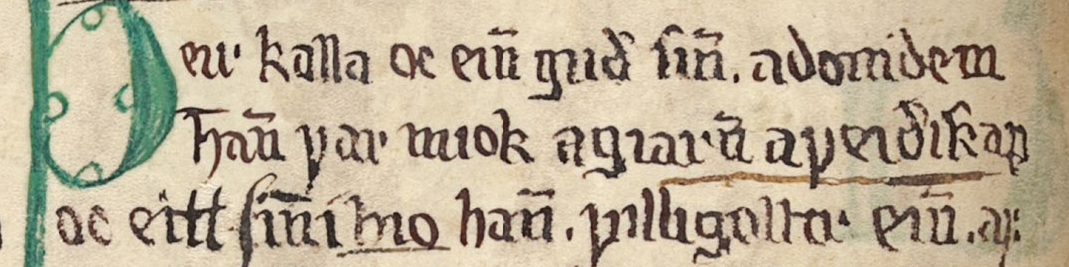 Þeir kalla oc ein̄ guð sin̄. adonidem
han̄ ꝩar miok agiarn̄ aꝩeiðiskap
oc eitt sin̄i hio han̄. ꝩilligolltr ein̄.